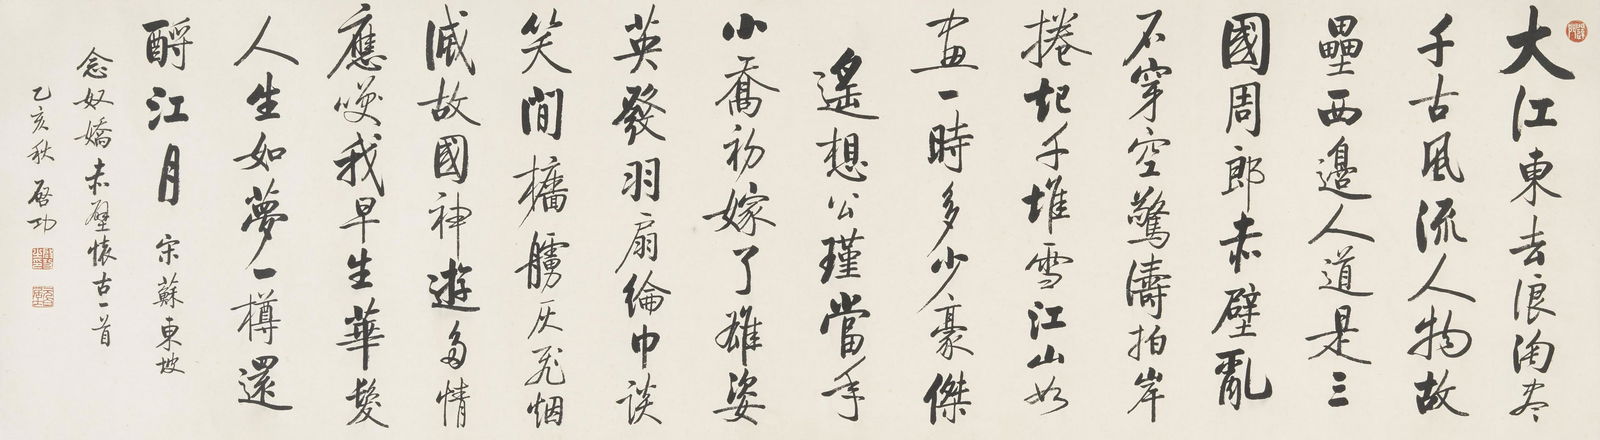 大江東去浪淘尽
千古風流人物故
壘西邊人道是三
國周郎赤壁亂
石穿空驚濤拍岸
捲起千堆雪江山如
畫一時多少豪傑
遙想公瑾當年
小喬初嫁了雄姿
英發羽扇綸巾談
笑間檣艣灰飛烟
滅故國神遊多情
應笑我早生華髮
人生如夢一樽還
酹江月 宋蘇東坡
念奴嬌赤壁懷古一首
乙亥秋 啓功